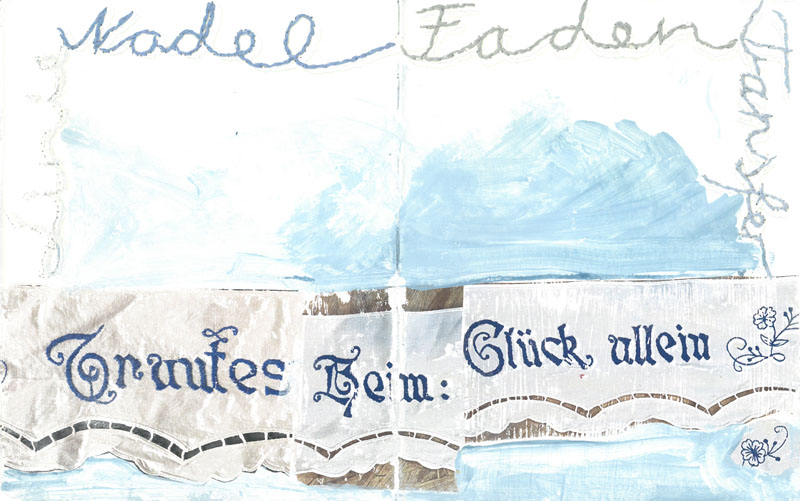 Nadel Faden
Transfer
Trautes Heim: Glück allein